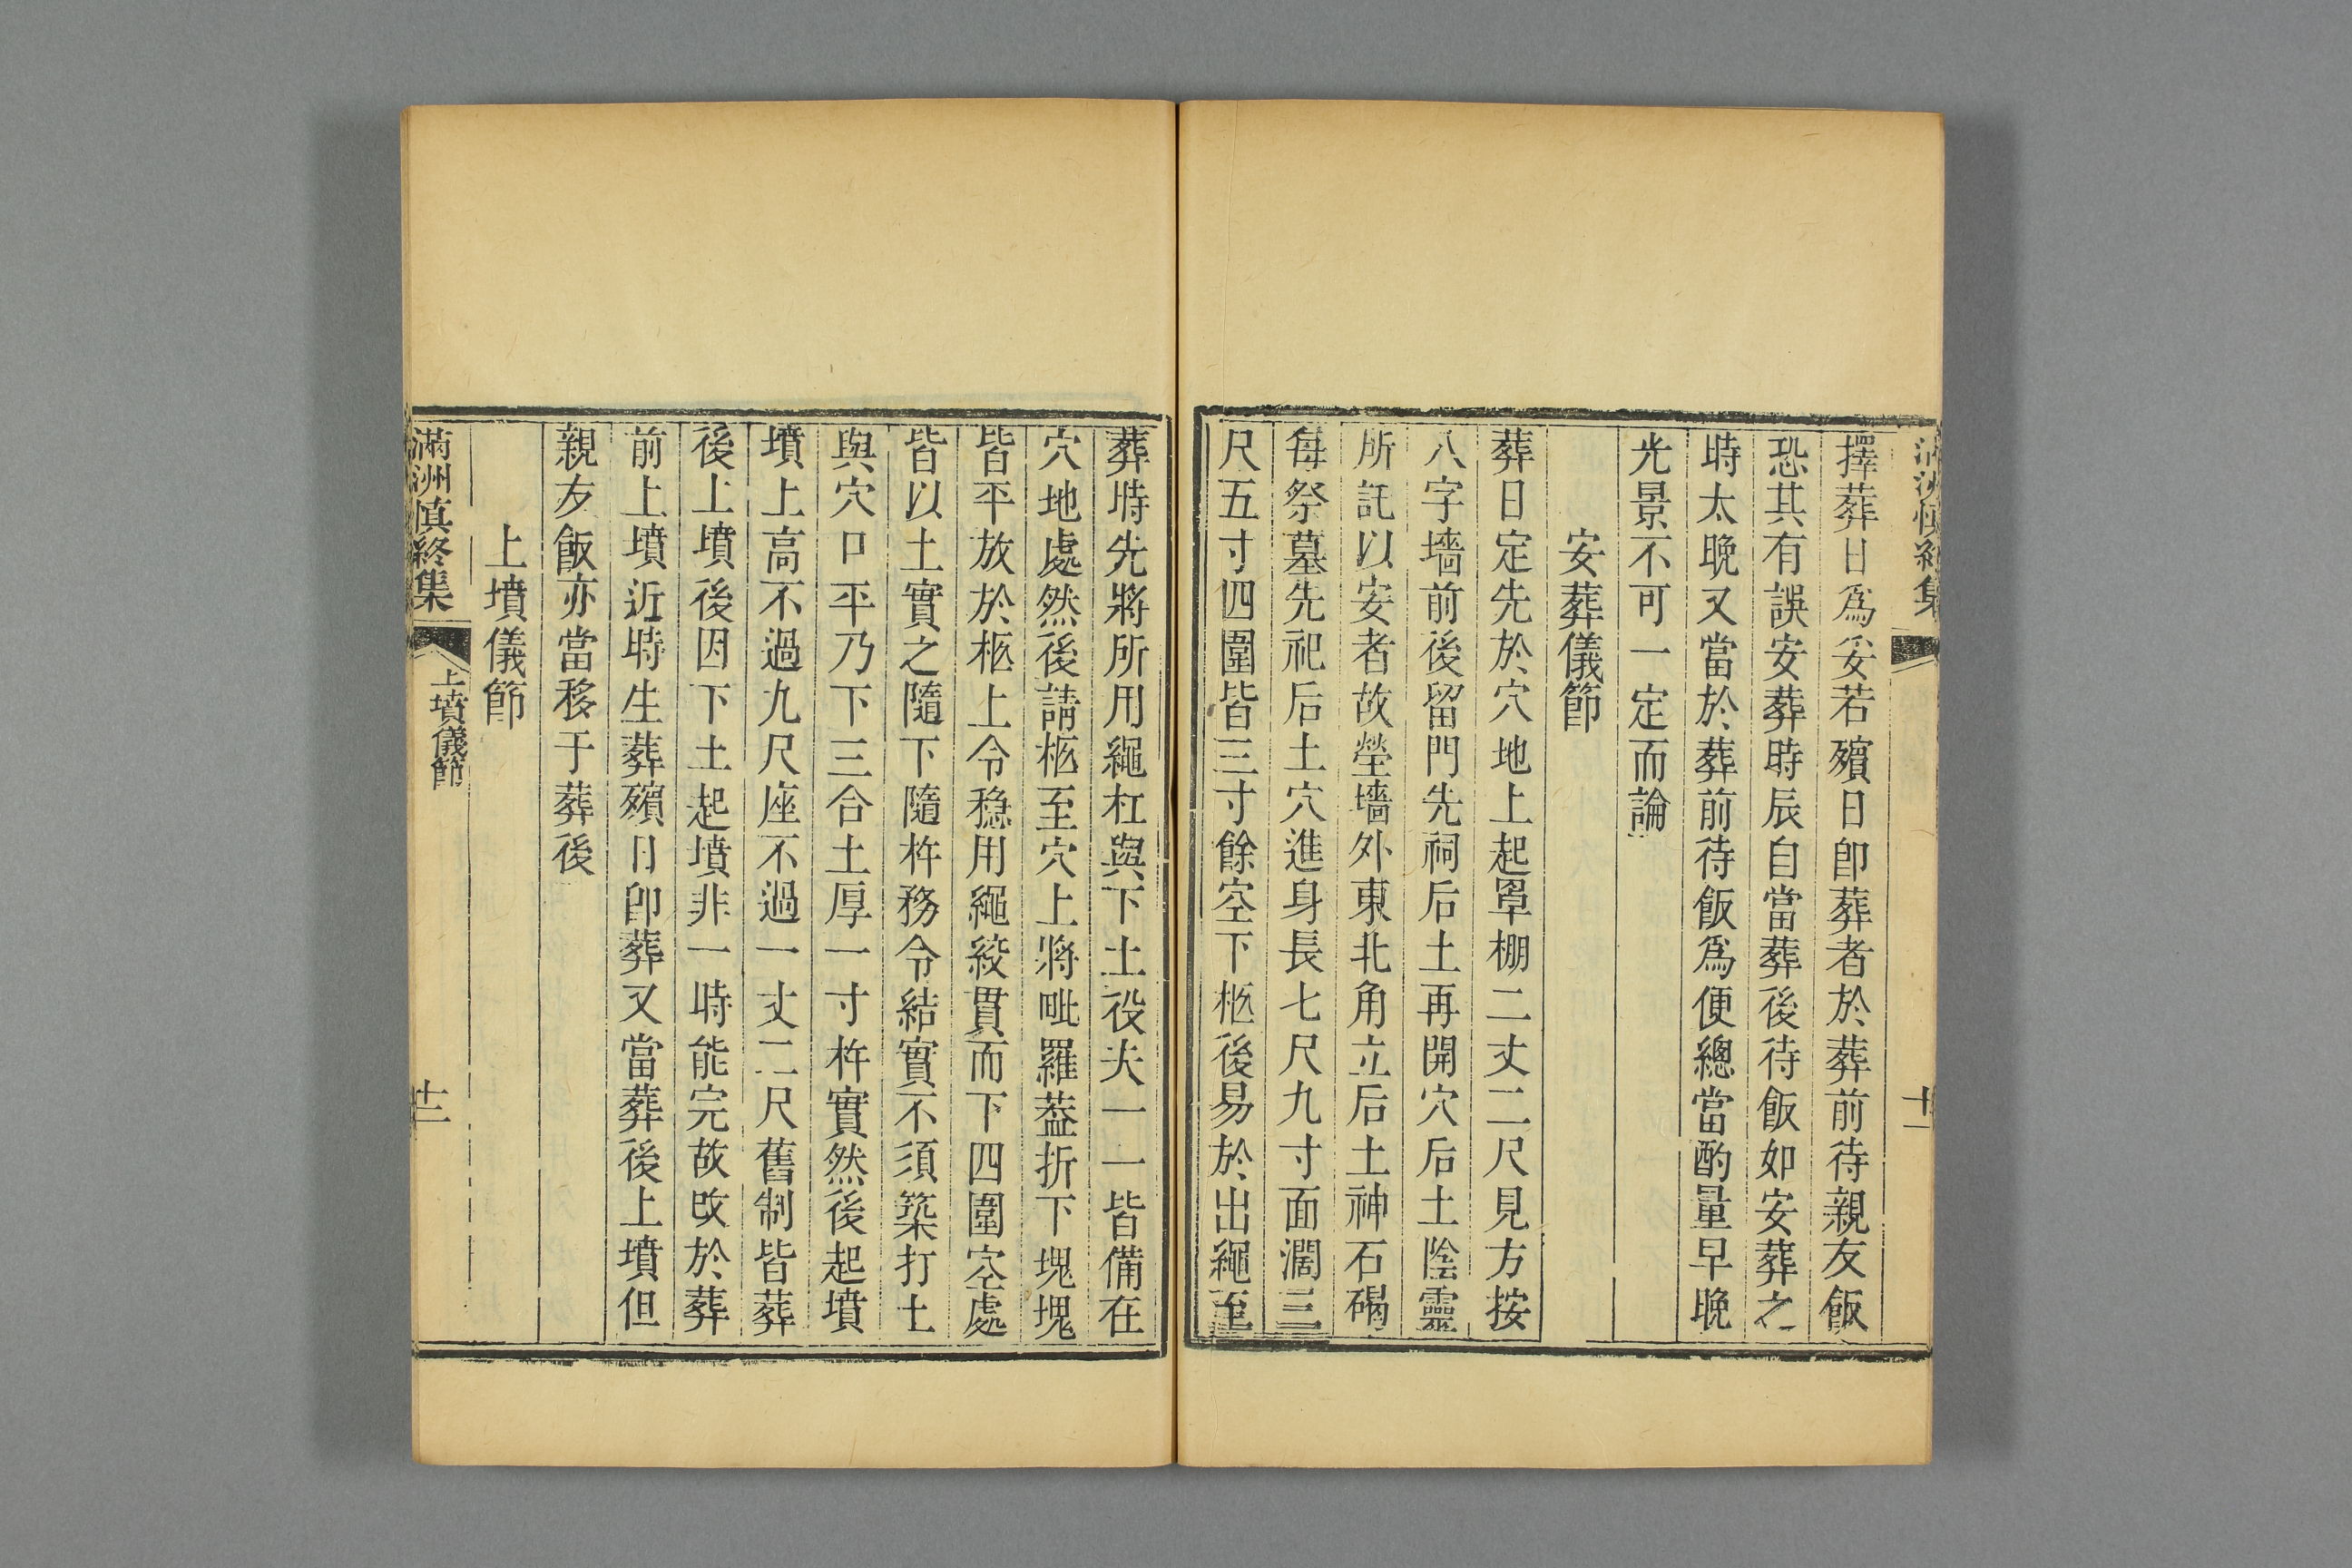 滿洲慎終集
十一
擇葬日爲妥若殯日卽葬者於葬前待親友飯
恐其有誤安葬時辰自當葬後待飯如安葬之
時太晚又當於葬前待飯爲便總當酌量早晚
光景不可一定而論
安葬儀節
葬日定先於穴地上起罩棚二丈二尺見方按
八字墻前後留門先祠后土再開穴后土陰靈
所託以安者故塋墻外東北角立后土神石碣
每祭墓先祀后土穴進身長七尺九寸面濶三
尺五寸四圍皆三寸餘空下柩後易於出繩至
葬時先將所用繩杠與下土役夫一一皆備在
穴地處然後請柩至穴上將毗羅葢折下塊塊
皆平放於柩上令稳用繩絞貫而下四圍空處
皆以土實之隨下隨杵務令結實不須築打土
與穴口平乃下三合土厚一寸杵實然後起墳
墳上高不過九尺座不過一丈二尺舊制皆葬
後上墳後因下土起墳非一時能完故改於葬
前上墳近時生葬殯日卽葬又當葬後上墳但
親友飯亦當移于葬後
上墳儀節
滿洲慎終集
上墳儀節
十二